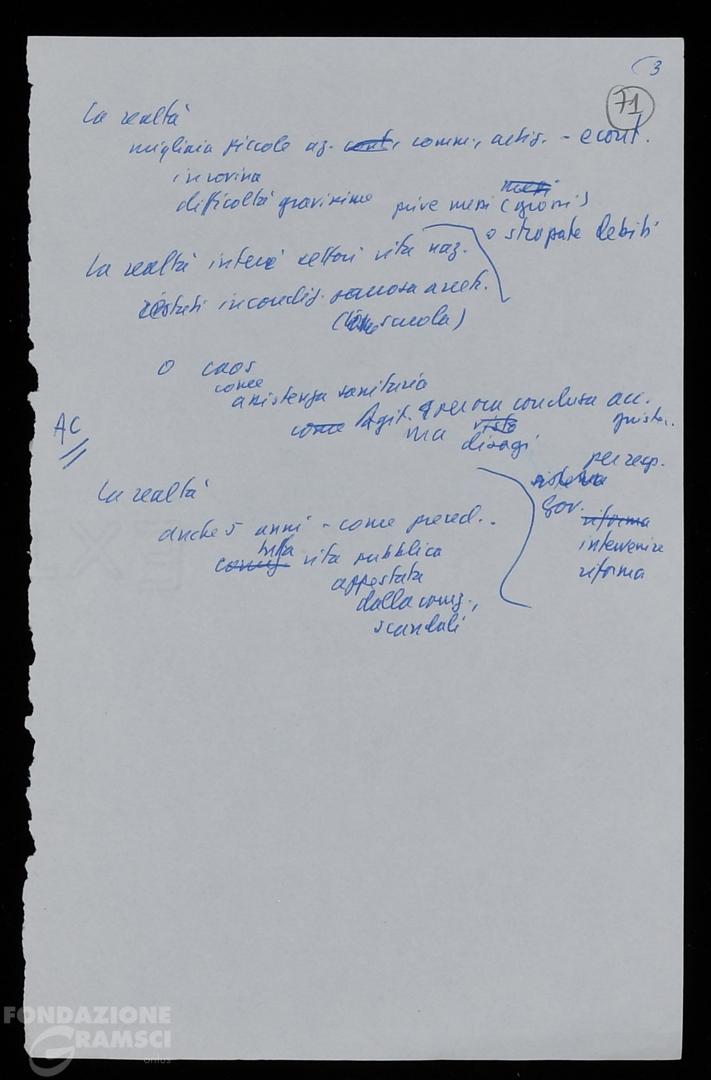 3
71
La realtà
migliaia piccole az. cont., comm., artig. - e cont.
in rovina
difficoltà gravissime
mesi
(giorni)
o strozzate debiti
La realtà interi settori vita naz.
restati in condiz. arretr.
(come scuola)
o caos
come
assistenza sanitaria
come legit.
conclusa acc.
ma visto
disagi
AC
per resp.
sistema
gov.
riforma
intervenire
riforma
La realtà
anche 5 anni - come preced..
tutta
vita pubblica
appestata
dalla corruz.,
scandali
FONDAZIONE
GRAMSCI
onlus